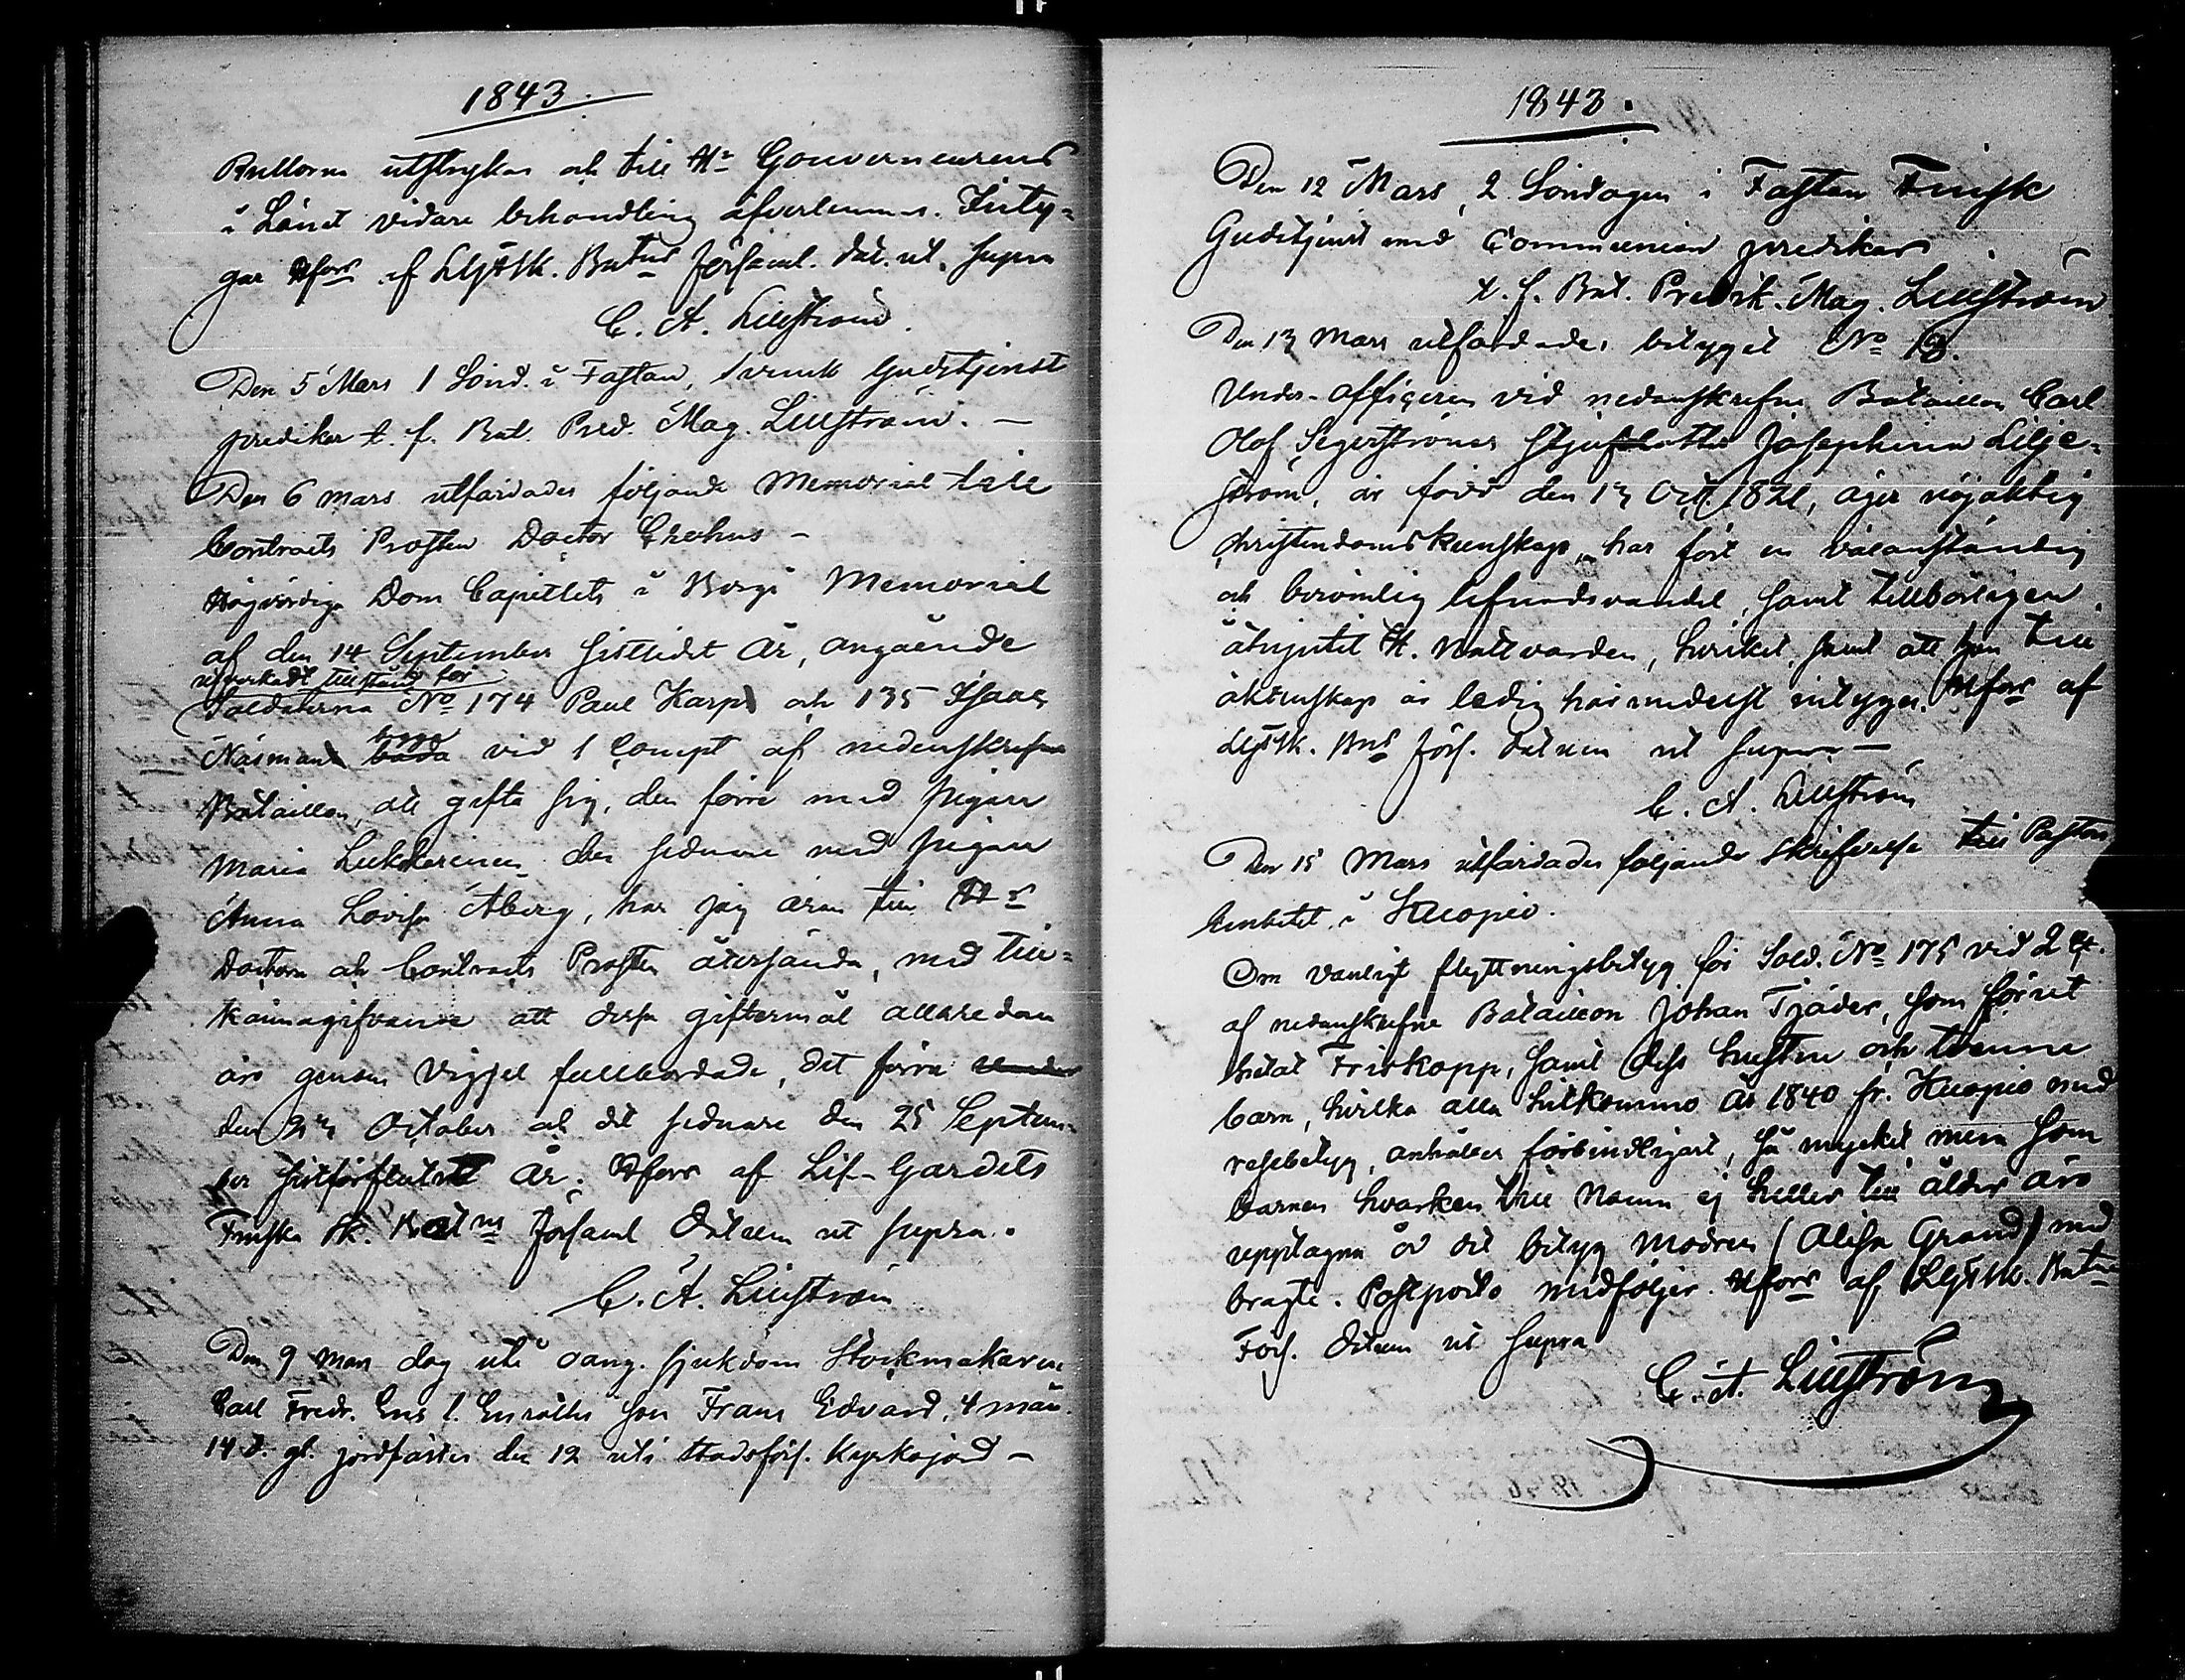 1843.
Rullorna utstrykas och till Hr Gouverneurens
i Länet vidare behandling öfverlemnas. Inty-
gar Hfors af LGFSk. Batns Församl. dat. ut supra
C. A. Lilljström.
Den 5 Mars 1 Sönd. i Fastan, svensk Gudstjenst
prediker t. f. Bat. Pred. Mag. Lilljström. —
Den 6 mars utfärdades följande Memorial till
Contracts Prosten Doctor Crohns —
Högvördige Dom Capitlets i Borgå Memorial
af den 14 September sistlidet År, angående
utverkadt tillstånd för
Soldaterna No 174 Paul Karp och 135 Isaac
Näsman begge båda vid 1 Compt af nedanskrefne
Bataillon, att gifta sig, den förre med pigan
Maria Lukkarinen den sednare med pigan
Anna Lovisa Åberg, har jag äran till Hr
Doctorn och Contracts Prosten återsända, med till-
kännagifvande att dessa giftermål allaredan
äro genom Vigsel fullbordade, det förra
den October och det sednare den 25 Septem-
ber sistförflutet År. Hfors af Lif-Gardets
Finska Sk. Batns Församl Datum ut supra.
C. A. Lilljström
Den 9 Mars dog uti oang. sjukdom Stockmakaren
Carl Fredr. Enroths son Frans Edvard, 4 mån.
14 d. gl. jordfästes den 12 uti Stadsförs. Kyrkojord —
1843.
Den 12 Mars, 2. Söndagen i Fastan Finsk
Gudstjenst med Communion predikar
t. f. Bat. Predik. Mag. Lilljström
Den 13 Mars utfärdades betyget No 13.
Under-officeren vid nedanskrefne Bataillon Carl
Olof Segerströms Styfdotter Josephina Lilje-
ström, är född den 13 Oct. 1821, äger nöjaktig
christendoms kunskap, har fört en välanständig
och berömlig lefnadsvandel, samt tillbörligen
åtnjutit H. Nattvarden, hvilket, samt att hon till
äktenskap är ledig härmedelst intygas. Hfors af
LGFSk. Bns Förs. Datum ut supra —
C. A. Lilljström
Den 15 Mars utfärdades följande Skrifvelse till Pastors
Embetet i Kuopio.
Om vanligt flyttningsbetyg för Sold. No 175 vid 2 C.
af nedanskrefne Bataillon Johan Tjäder, som förut
hetat Friskopp, samt dess hustru och tvenne
barn, hvilka alla hitkommo År 1840 fr. Kuopio med
resebetyg, anhålles förbindligast, så mycket mera som
barnen hvarken till Namn ej heller till ålder äro
upptagna å det betyg modren (Alisa Grand) med
bragte. Postporto medföljer. Hfors af LGFSk. Batns
Förs. Datum ut supra
C. A. Lilljström